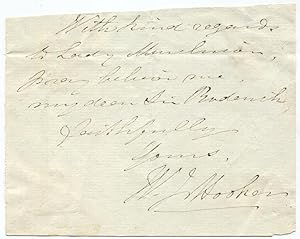 With kind regards
to Lady Murchison,
Pray believe me,
my dear Sir Roderick,
faithfully
Yours,
W. J. Hooker